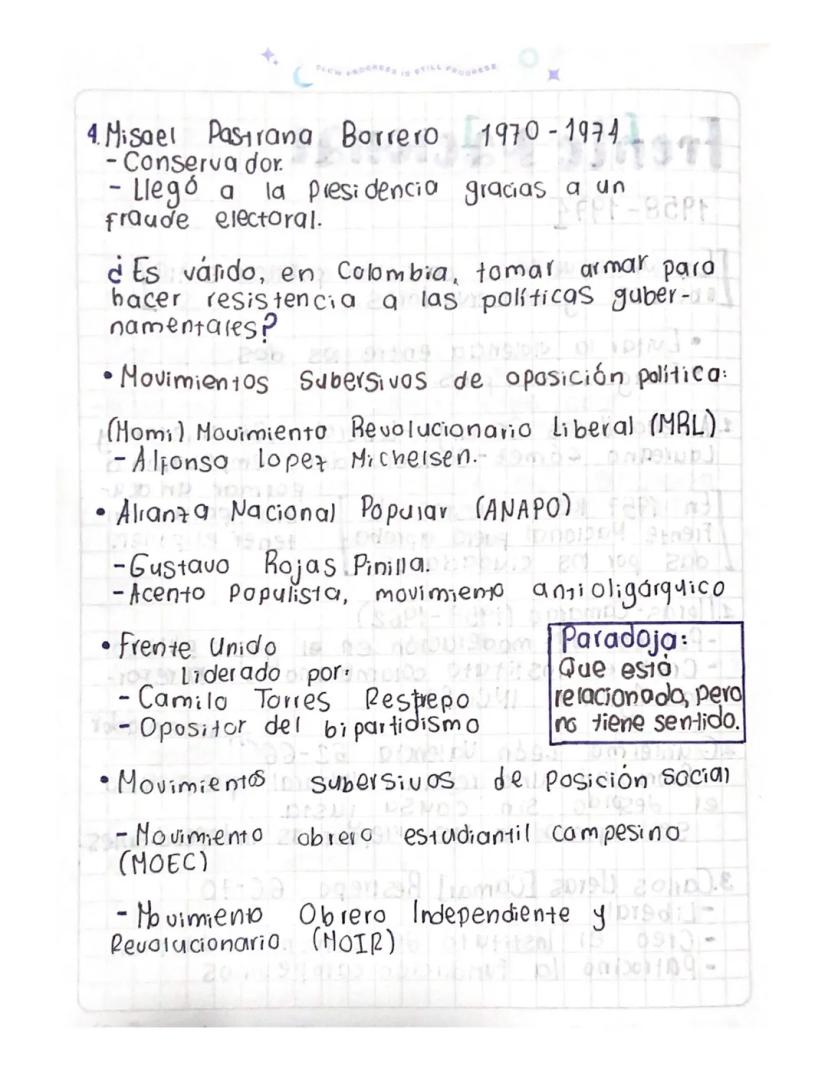 SLOW PROGRESS IS STILL PROGRESS
4. Misael Pastrana Borrero 1970-1974
- Conservador.
- Llegó a la presidencia gracias a un
fraude electoral.
¿Es várido, en Colombia, tomar armar para
hacer resistencia a las políticas guber-
namentales?
• Movimientos Subersivos de oposición política:
(Homi) Movimiento Revolucionario Liberal (MRL)
- Alfonso Lopez Michelsen.-
• Alianza Nacional Popular (ANAPO)
- Gustavo Rojas Pinilla.
- Acento Populista, movimiento antioligárquico
• Frente Unido
Liderado por:
- Camilo Torres Restrepo
- Opositor del bipartidismo
Paradoja:
Que está
relacionado, pero
no tiene sentido.
• Movimientos subersivos de posición social
- Movimiento obrero estudiantil campesino
(MOEC)
- Movimiento Obrero Independiente y
Revolucionario (MOIR)